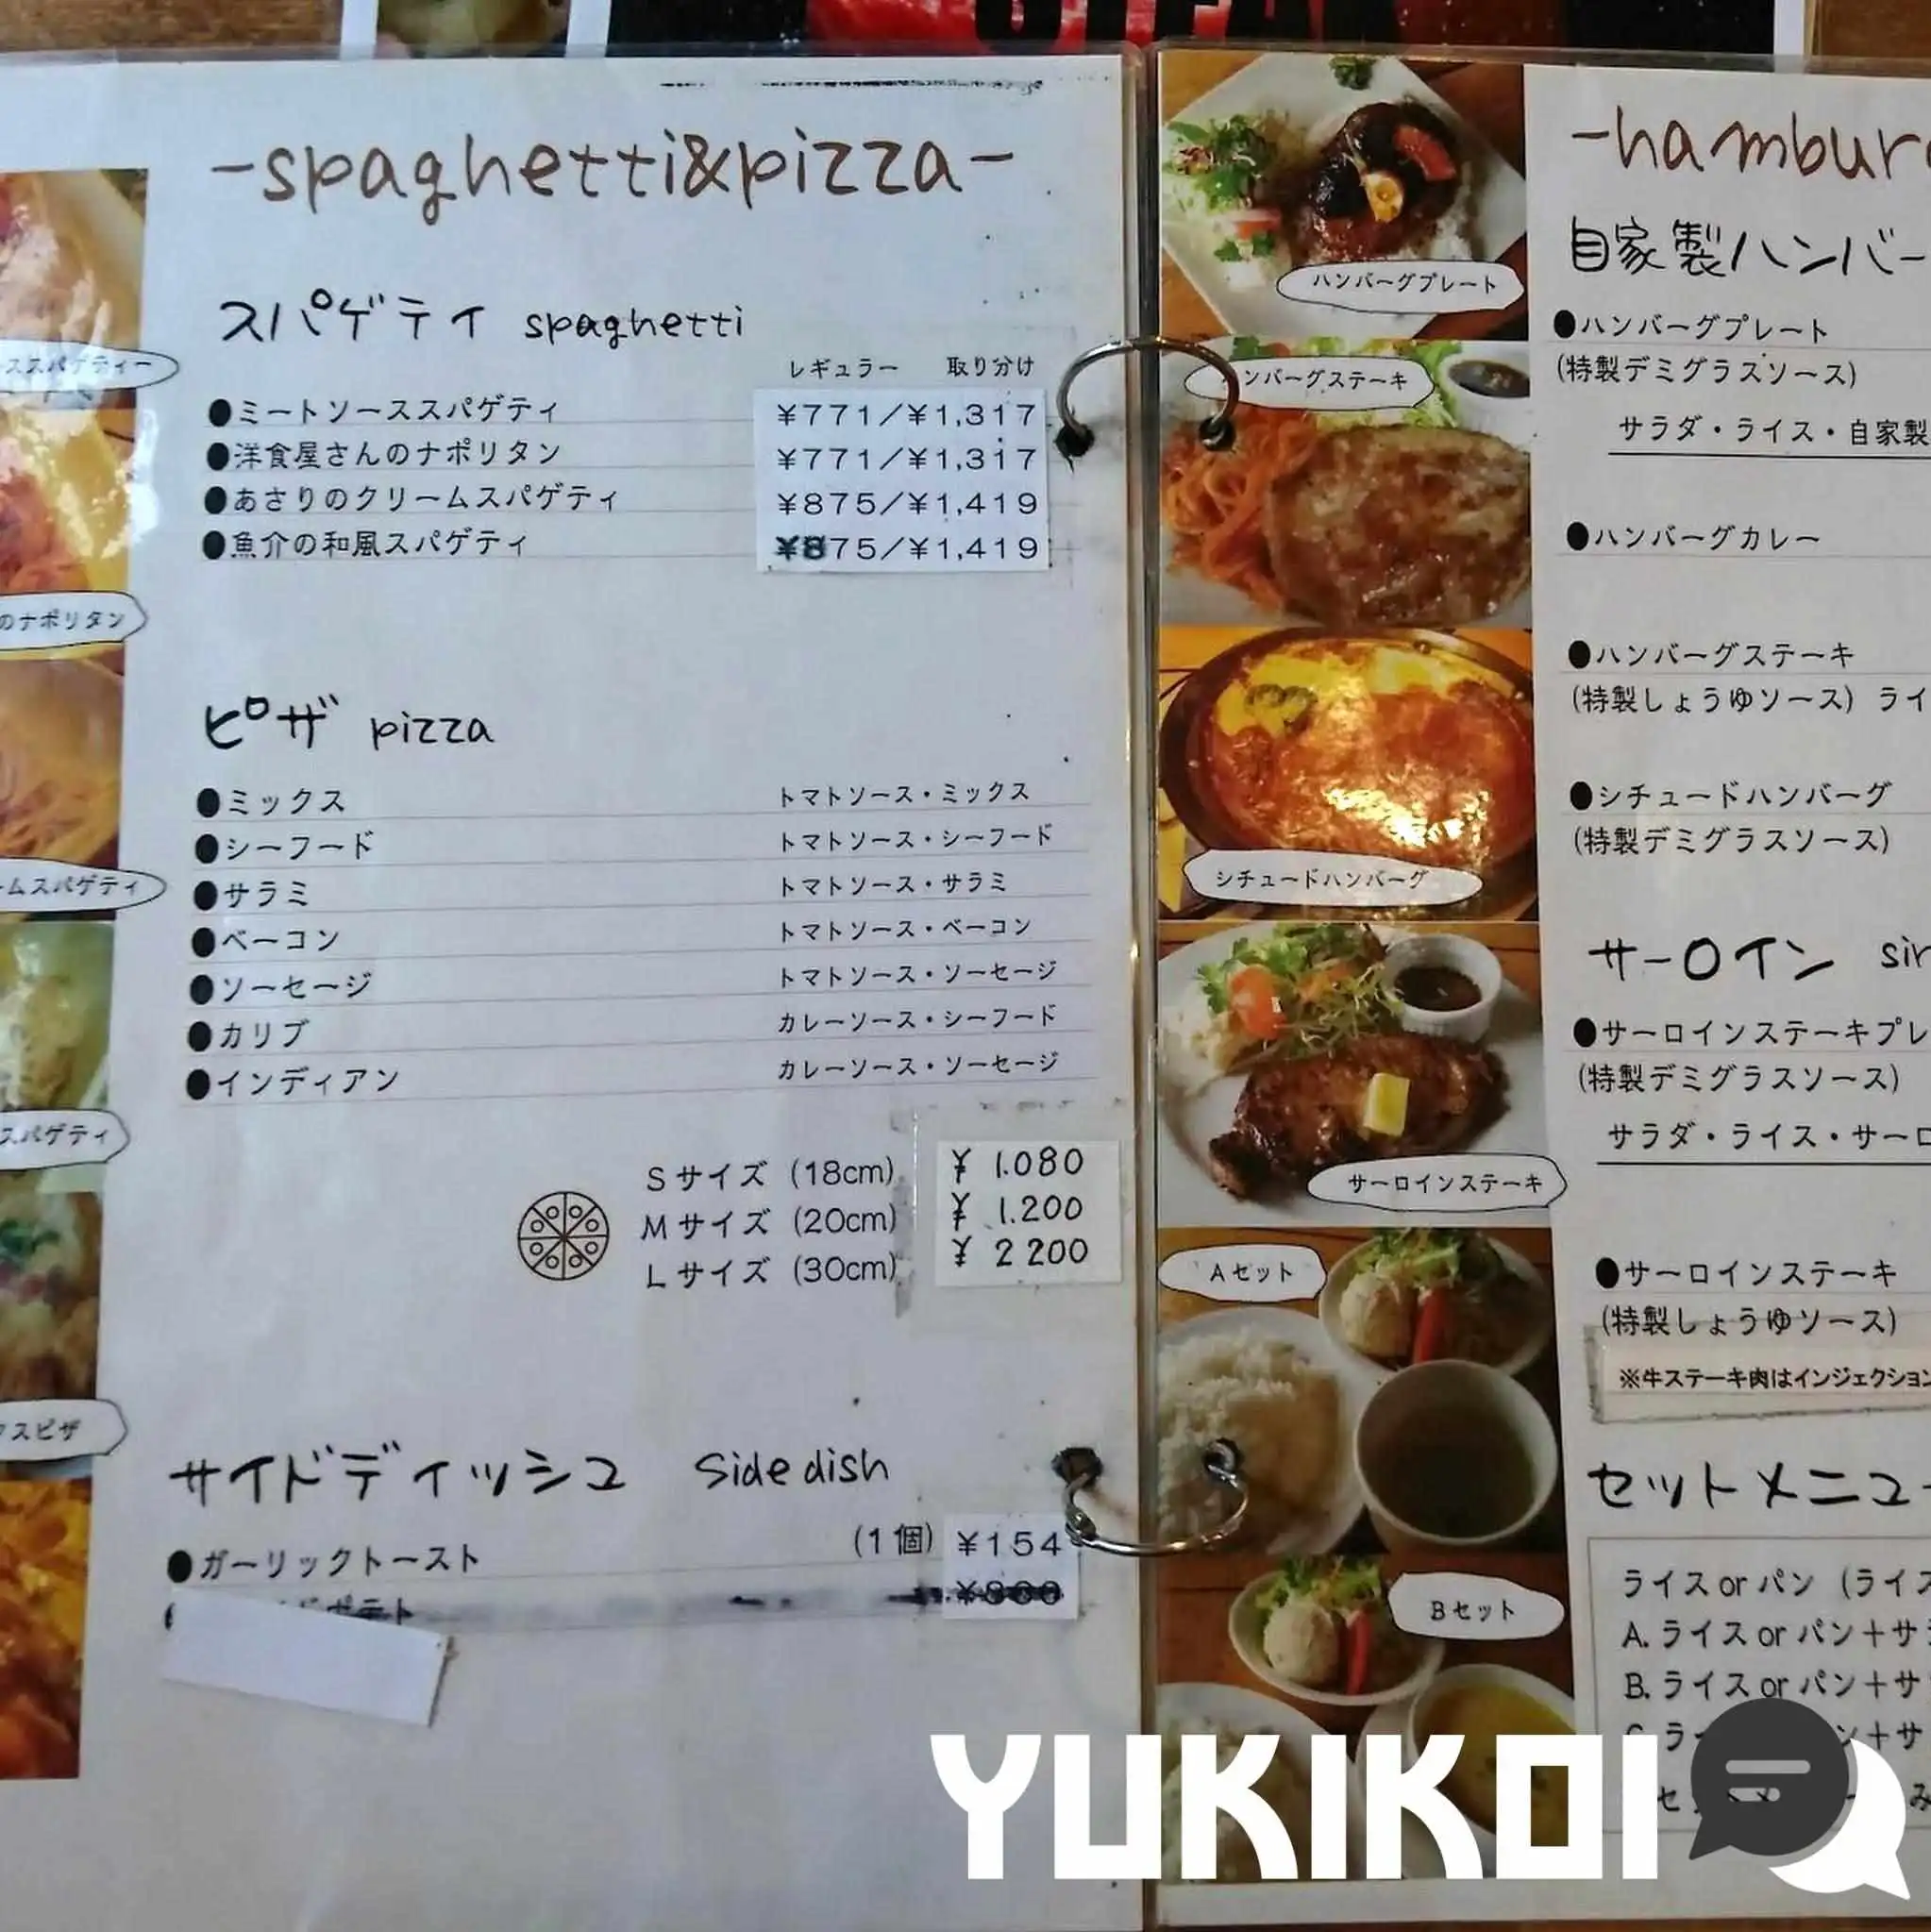 -spaghetti&pizza-
スパゲティ spaghetti
レギュラー 取り分け
●ミートソーススパゲティ ¥771/¥1,317
●洋食屋さんのナポリタン ¥771/¥1,317
●あさりのクリームスパゲティ ¥875/¥1,419
●魚介の和風スパゲティ ¥875/¥1,419
ピザ pizza
●ミックス トマトソース・ミックス
●シーフード トマトソース・シーフード
●サラミ トマトソース・サラミ
●ベーコン トマトソース・ベーコン
●ソーセージ トマトソース・ソーセージ
●カリブ カレーソース・シーフード
●インディアン カレーソース・ソーセージ
Sサイズ (18cm) ¥ 1.080
Mサイズ (20cm) ¥ 1.200
Lサイズ (30cm) ¥ 2200
サイドディッシュ Side dish
●ガーリックトースト (1個) ¥154
ススパゲティー
のナポリタン
ームスパゲティ
スパゲティ
クスピザ
ハンバーグプレート
ンバーグステーキ
シチュードハンバーグ
サーロインステーキ
Aセット
Bセット
-hambur
自家製ハンバー
●ハンバーグプレート
(特製デミグラスソース)
サラダ・ライス・自家製
●ハンバーグカレー
●ハンバーグステーキ
(特製しょうゆソース) ライ
●シチュードハンバーグ
(特製デミグラスソース)
サーロイン sir
●サーロインステーキプレ
(特製デミグラスソース)
サラダ・ライス・サーロ
●サーロインステーキ
(特製しょうゆソース)
※牛ステーキ肉はインジェクション
セットメニュー
ライス or パン (ライス
A. ライス or パン+サ
B. ライス or パン+サ
YUKIKOI